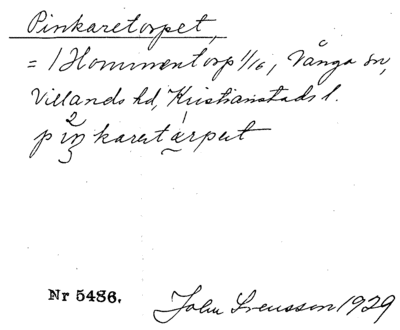 Pinkaretorpet,
= 1 Hommentorp 1/16, Vånga sn,
Villands hd, Kristianstads l.
Nr 5486.
John Svensson 1929